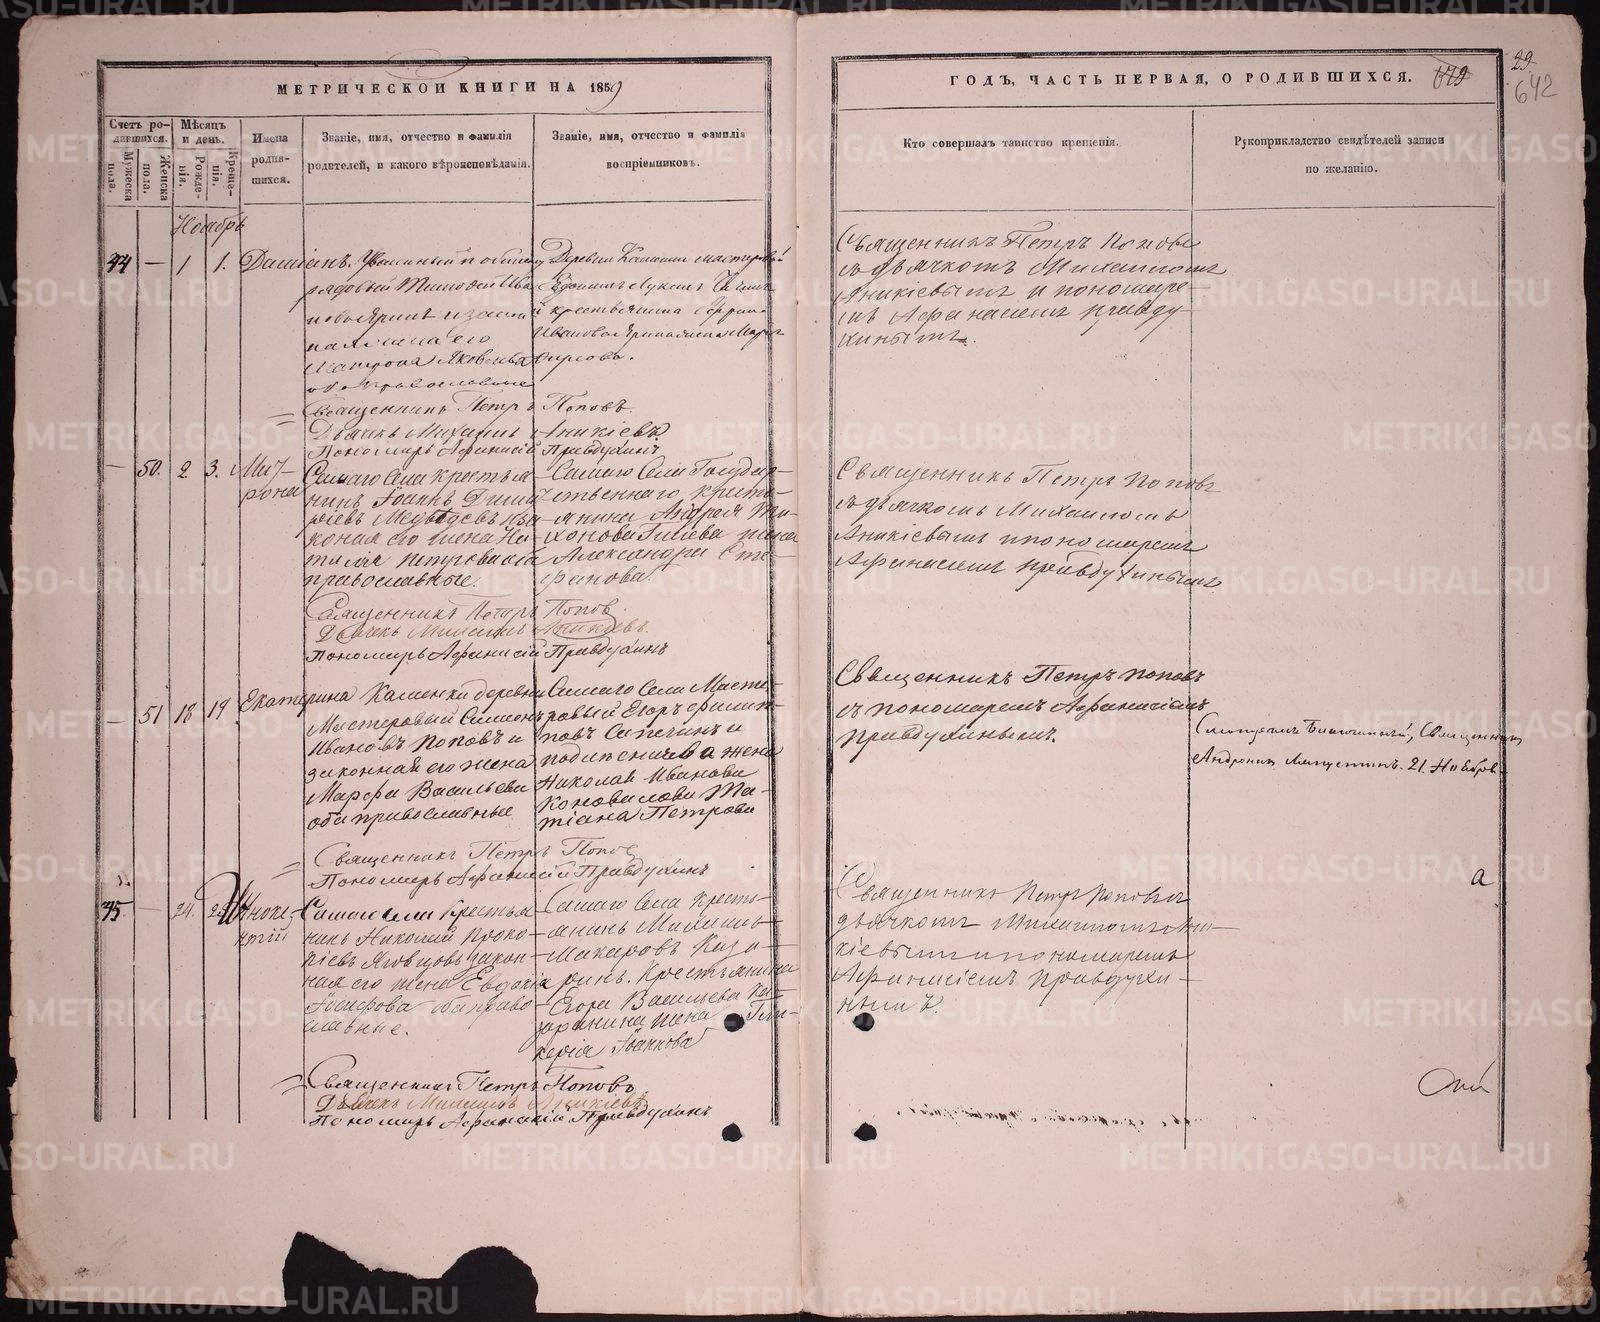 МЕТРИЧЕСКОЙ КНИГИ НА 1859
ГОДЪ, ЧАСТЬ ПЕРВАЯ, О РОДИВШИХСЯ.
29
642
Счетъ ро-
дившихся.
Мужеска
пола.
Женска
пола.
Мѣсяцъ
и день.
Рожде-
нія.
Креще-
нія.
Имена
родив-
шихся.
Званіе, имя, отчество и фамилія
родителей, и какого вѣроисповѣданія.
Званіе, имя, отчество и фамилія
воспріемниковъ.
Кто совершалъ таинство крещенія.
Рукоприкладство свидѣтелей записи
по желанію.
Ноябрь
44 — 1 1.
Даміанъ.
рядовой Тимофей Ива
его
Матрона Яковлева
оба православные
Деревни мастеровой
Евдокимъ Лукинъ
крестьянина
Ивановa
Священникъ Петръ Поповъ
съ дьячкомъ Михаиломъ
Аникіевымъ и пономаре-
мъ Афанасіемъ Правду
хинымъ.
Священникъ Петръ Поповъ.
Дьячекъ Михаилъ Аникіевъ.
Пономарь Афанасій Правдухинъ
— 50. 2 3.
Мат-
рона
Самаго села крестья
нинъ Іоаннъ Дими
тріевъ Медвѣдевъ и за
конная его жена На
талія Петровна оба
православные.
Самаго села Государ-
ственнаго кресть-
янина Андрея Ти-
хонова Гилева жена
Александра Сте-
фанова.
Священникъ Петръ Поповъ
съ дьячкомъ Михаиломъ
Аникіевымъ и пономаремъ
Афанасіемъ Правдухинымъ
Священникъ Петръ Поповъ.
Дьячекъ Михаилъ Аникіевъ.
Пономарь Афанасій Правдухинъ
— 51 18 19
Екатерина
Каменки деревни
Мастеровый Симеонъ
Ивановъ Поповъ и
законная его жена
Марфа Васильева
оба православные
Самаго села Масте-
ровый Егоръ Филип-
повъ Сапегинъ и
жена
Николая Иванова
Коновалова Та-
тіана Петрова
Священникъ Петръ Поповъ
съ пономаремъ Афанасіемъ
Правдухинымъ.
Смотрѣлъ Благочинный, Священникъ
21. Ноября
Священникъ Петръ Поповъ
Пономарь Афанасій Правдухинъ
45 — 24. 25
Инноке-
нтій
Самаго села Крестья
нинъ Николай Проко-
піевъ Яговцовъ закон-
ная его жена Евдокія
оба право-
славные.
Самаго села Кресть-
янинъ Михаилъ
Макаровъ Каза-
ринъ. Крестьянина
Егора Васильева Ка-
жена Гли-
керія Іоаннова
Священникъ Петръ Поповъ съ
дьячкомъ Михаиломъ Ани-
кіевымъ и пономаремъ
Афанасіемъ Правдухи-
нымъ.
Священникъ Петръ Поповъ.
Дьячекъ Михаилъ Аникіевъ
Пономарь Афанасій Правдухинъ
METRIKI.GASO-URAL.RU